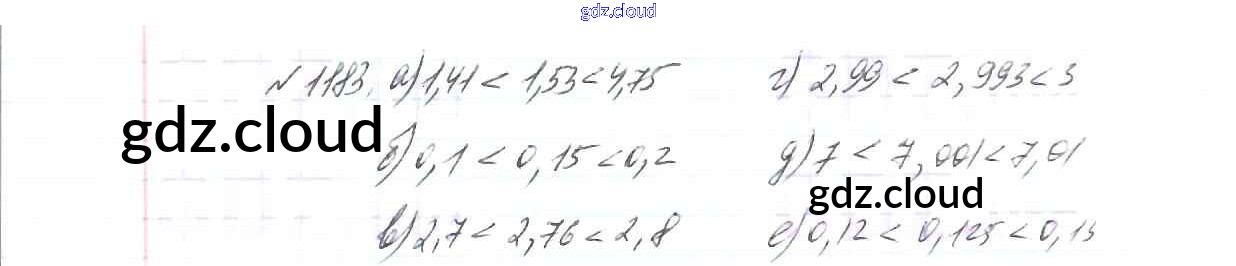 gdz.cloud
№1183. а) 1,41 < 1,53 < 4,75
г) 2,99 < 2,993 < 3
gdz.cloud
б) 0,1 < 0,15 < 0,2
д) 7 < 7,001 < 7,01
gdz.cloud
в) 2,7 < 2,76 < 2,8
е) 0,12 < 0,125 < 0,13